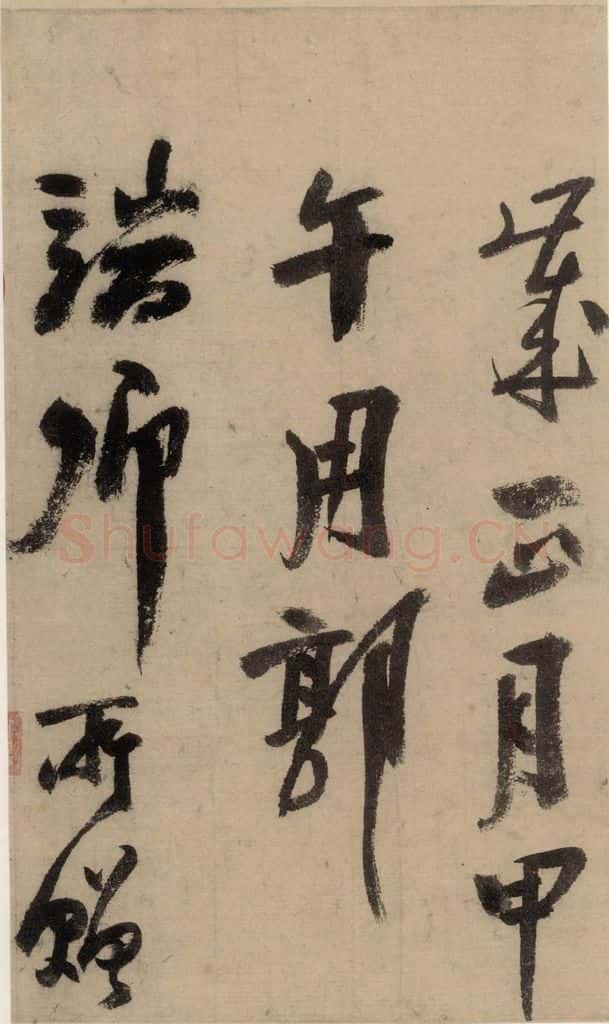 歲正月甲
午用郭
卿所贈
Shufawang.CN